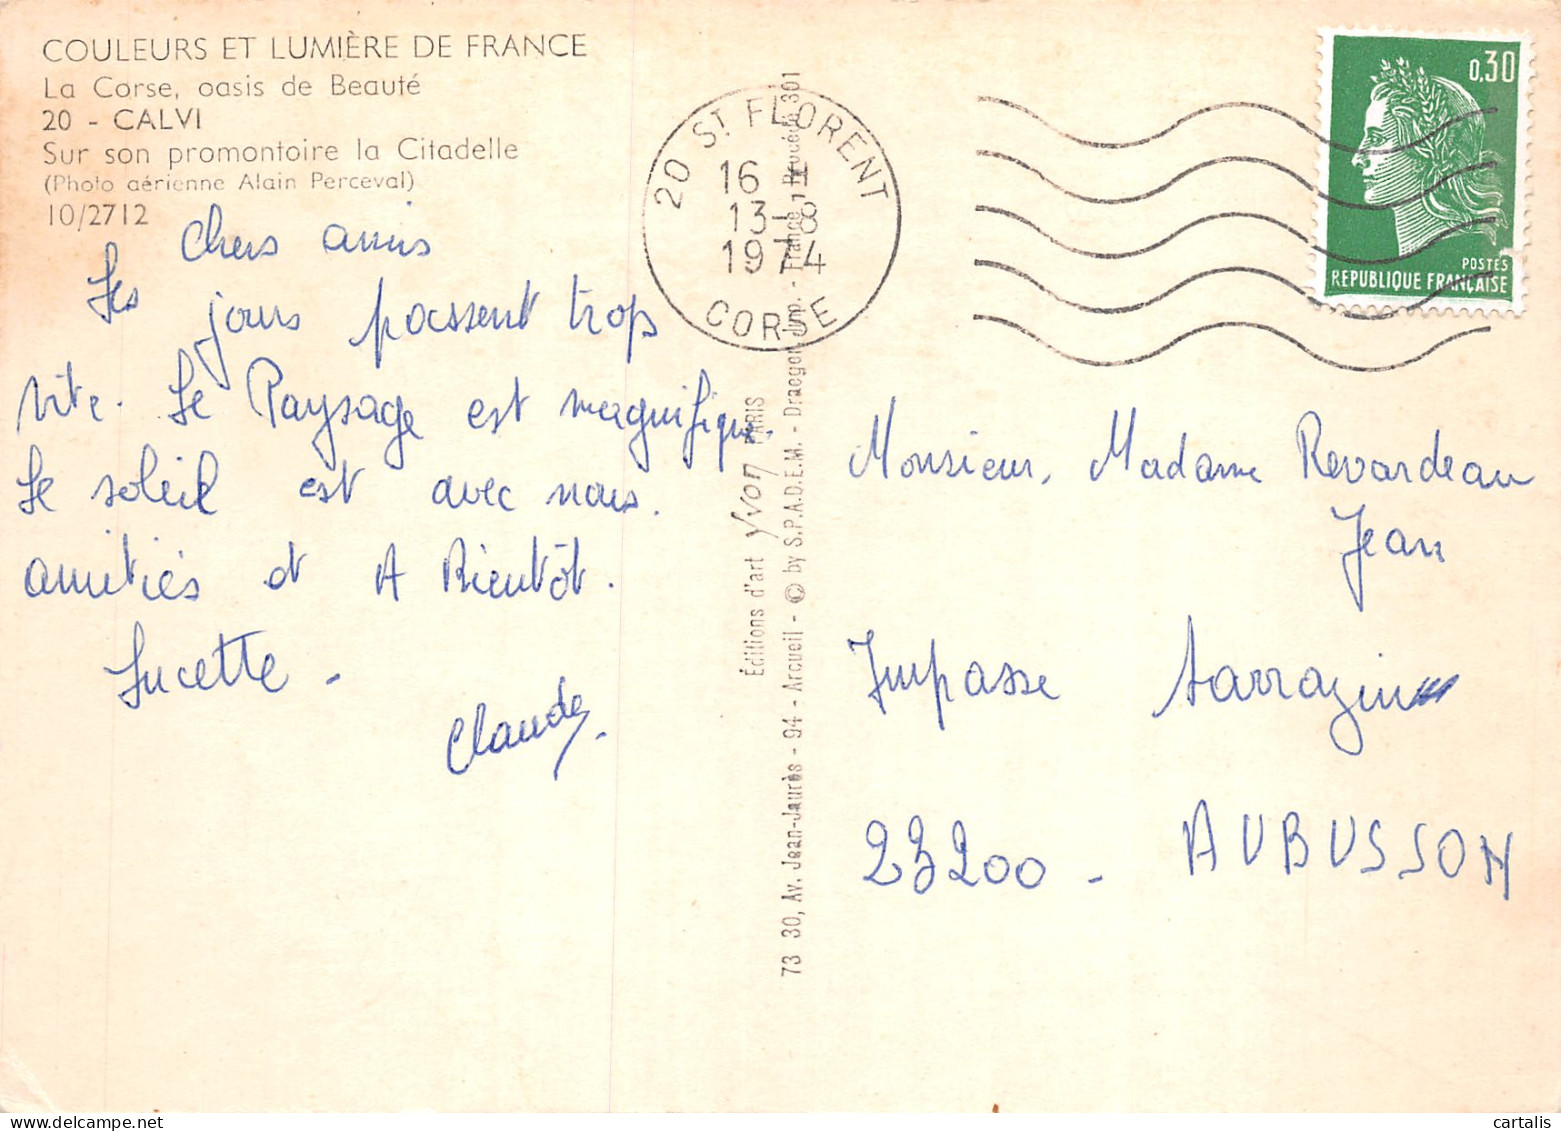 COULEURS ET LUMIÈRE DE FRANCE
La Corse, oasis de Beauté
20 - CALVI
Sur son promontoire la Citadelle
(Photo aérienne Alain Perceval)
10/2712
Chers amis
Les jours passent trop
vite. Le Paysage est magnifique.
Le soleil est avec nous.
amitiés et A Bientôt.
Lucette -
Claude.
Éditions d'art Yvon PARIS
73 30, Av. Jean-Jaurès - 94 - Arcueil - © by S.P.A.D.E.M. - Draeger Imp. - France - Procédé 301
20 ST FLORENT
16 H
13-8
1974
CORSE
0,30
POSTES
REPUBLIQUE FRANÇAISE
Monsieur, Madame Revardeau
Jean
Impasse Sarrazin
23200 - AUBUSSON
cartalis